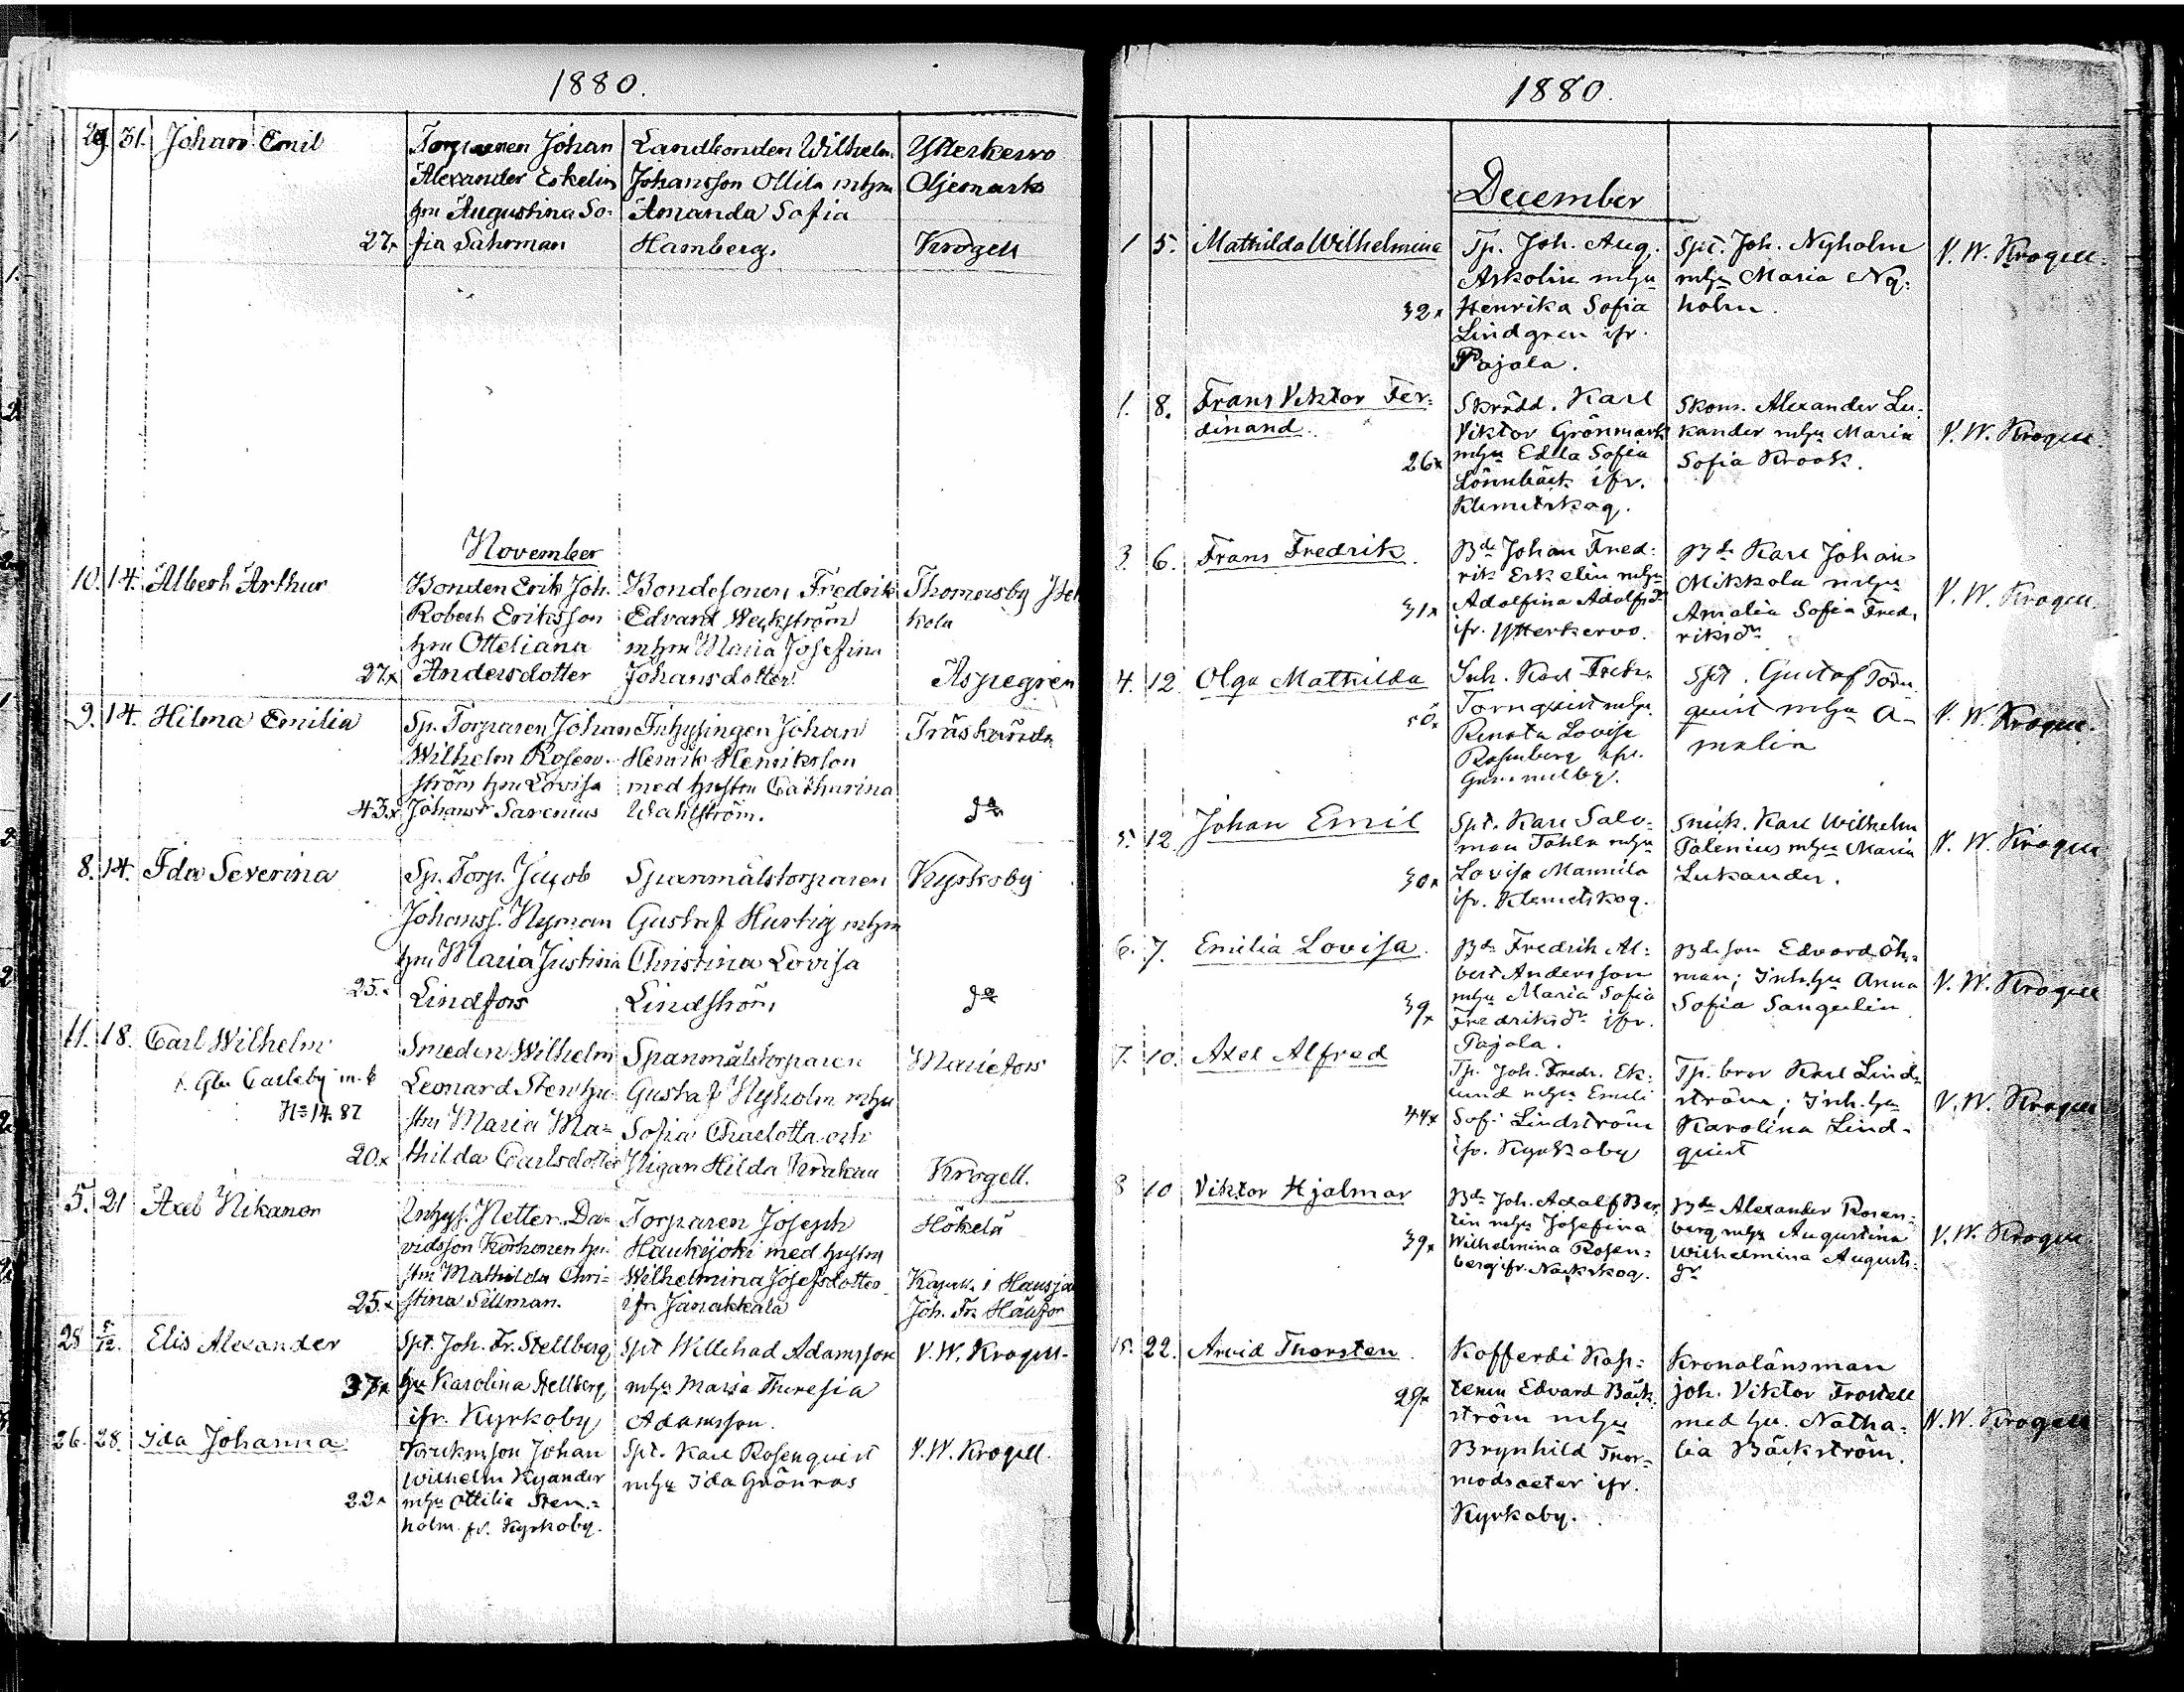 1880.
29 31. Johan Emil
Torparen Johan
Alexander Eskelin
hu Augustina So-
27 x fia Sahrman
Landbonden Wilhelm
Johansson Ollila mhu
Amanda Sofia
Hamberg.
Ytterkervo
Oljemarks
Krogell
November
10. 14. Albert Arthur
Bonden Erik Joh.
Robert Eriksson
hu Otteliana
27. x Andersdotter
Bondesonen Fredrik
Edvard Weckström
mhu Maria Josefina
Johansdotter
Thomasby
kola
Aspegren
9. 14. Hilma Emilia
Sp. Torparen Johan
Wilhelm Rosen-
ström hu Lovisa
43. x Johansdr Sarenius
Inhysingen Johan
Henrik Henriksson
med hustru Catharina
Wahlström.
Träskända
do
8. 14. Ida Severina
Sp. Torp. Jacob
Johanss. Nyman
hu Maria Justina
25. x Lindfors
Spanmålstorparen
Gustaf Hurtig mhu
Christina Lovisa
Lindström
Kyrkoby
do
11. 18. Carl Wilhelm
i. Gla Carleby m. b
No 14. 82
Smeden Wilhelm
Leonard Sten hu-
stru Maria Ma-
20. x thilda Carlsdotter
Spanmålstorparen
Gustaf Nyholm mhu
Sofia Charlotta och
Pigan Hilda Krakau
Mariefors
Krogell.
5. 21 Axel Nikanor
Inhys. Petter Da-
vidsson Korhonen hu-
stru Mathilda Chri-
25. x stina Sillman.
Torparen Joseph
Haukijoki med hustru
Wilhelmina Josefsdotter
ifr. Janakkala
Hökelä
Kapell. i Hausjä
Joh. Fr.
28 5/12. Elis Alexander
Spt. Joh. Fr. Stellberg
37 x hu Karolina Stellberg
ifr. Kyrkoby
Spt Willehad Adamsson
mhu Maria Theresia
Adamsson.
V. W. Krogell.
26. 28. Ida Johanna
Johan
Wilhelm Kyander
22 x mhu Ottilia Sten-
holm fr. Kyrkoby.
Spt. Karl Rosenqvist
mhu Ida Grönroos
V. W. Krogell.
1880.
December
1 5. Mathilda Wilhelmina
Tp. Joh. Aug.
Askolin mhu
32 x Henrika Sofia
Lindgren ifr.
Pajala.
Spt. Joh. Nyholm
mhu Maria Ny-
holm.
V. W. Krogell.
1. 8. Frans Viktor Fer-
dinand.
Skrädd. Karl
Viktor Grönmark
26 x mhu Edla Sofia
Lönnbäck ifr.
Klemetskog.
Skom. Alexander Lu-
kander mhu Maria
Sofia Krook.
V. W. Krogell.
3. 6. Frans Fredrik.
Bd. Johan Fred-
rik Eskelin mhu
31 x Adolfina Adolfsdr
ifr. Ytterkervo.
Bd. Karl Johan
Mikkola mhu
Amalia Sofia Fred-
riksdr
V. W. Krogell.
4. 12. Olga Mathilda
Inh. Karl Fredr.
Tornqvist mhu
Renata Lovisa
Rosenberg ifr.
Gammelby.
Spt. Gustaf Torn-
qvist mhu A-
malia
V. W. Krogell.
5. 12. Johan Emil
Spt. Karl Salo-
mon Tåhla mhu
30 x Lovisa Mannila
ifr. Klemetskog.
Snick. Karl Wilhelm
Palenius mhu Maria
Lukander.
V. W. Krogell
6. 7. Emilia Lovisa.
Bd. Fredrik Al-
bert Andersson
39 x mhu Maria Sofia
Fredriksdr ifr.
Pajala.
Bdeson Edvard Öh-
man; Inh. hu Anna
Sofia Sangelin
V. W. Krogell
7. 10. Axel Alfred
Tp. Joh. Fredr. Ek-
lund mhu Emeli
44 x Sofi Lindström
ifr. Kyrkoby
Tp. bror Karl Lind-
ström; Inh. hu
Karolina Lind-
qvist
V. W. Krogell
8 10 Viktor Hjalmar
Bd. Joh. Adolf Ber-
lin mhu Josefina
39 x Wilhelmina Rosen-
berg ifr. Nackskog.
Bd. Alexander Rosen-
berg mhu Augustina
Wilhelmina Augusts-
dr
V. W. Krogell
15. 22. Arvid Thorsten.
Kofferdi Kap-
29 x tenen Edvard Bäck-
ström mhu
Brynhild Thor-
modsaeter ifr.
Kyrkoby.
Kronolänsman
Joh. Viktor Frostell
med hu. Natha-
lia Bäckström.
V. W. Krogell